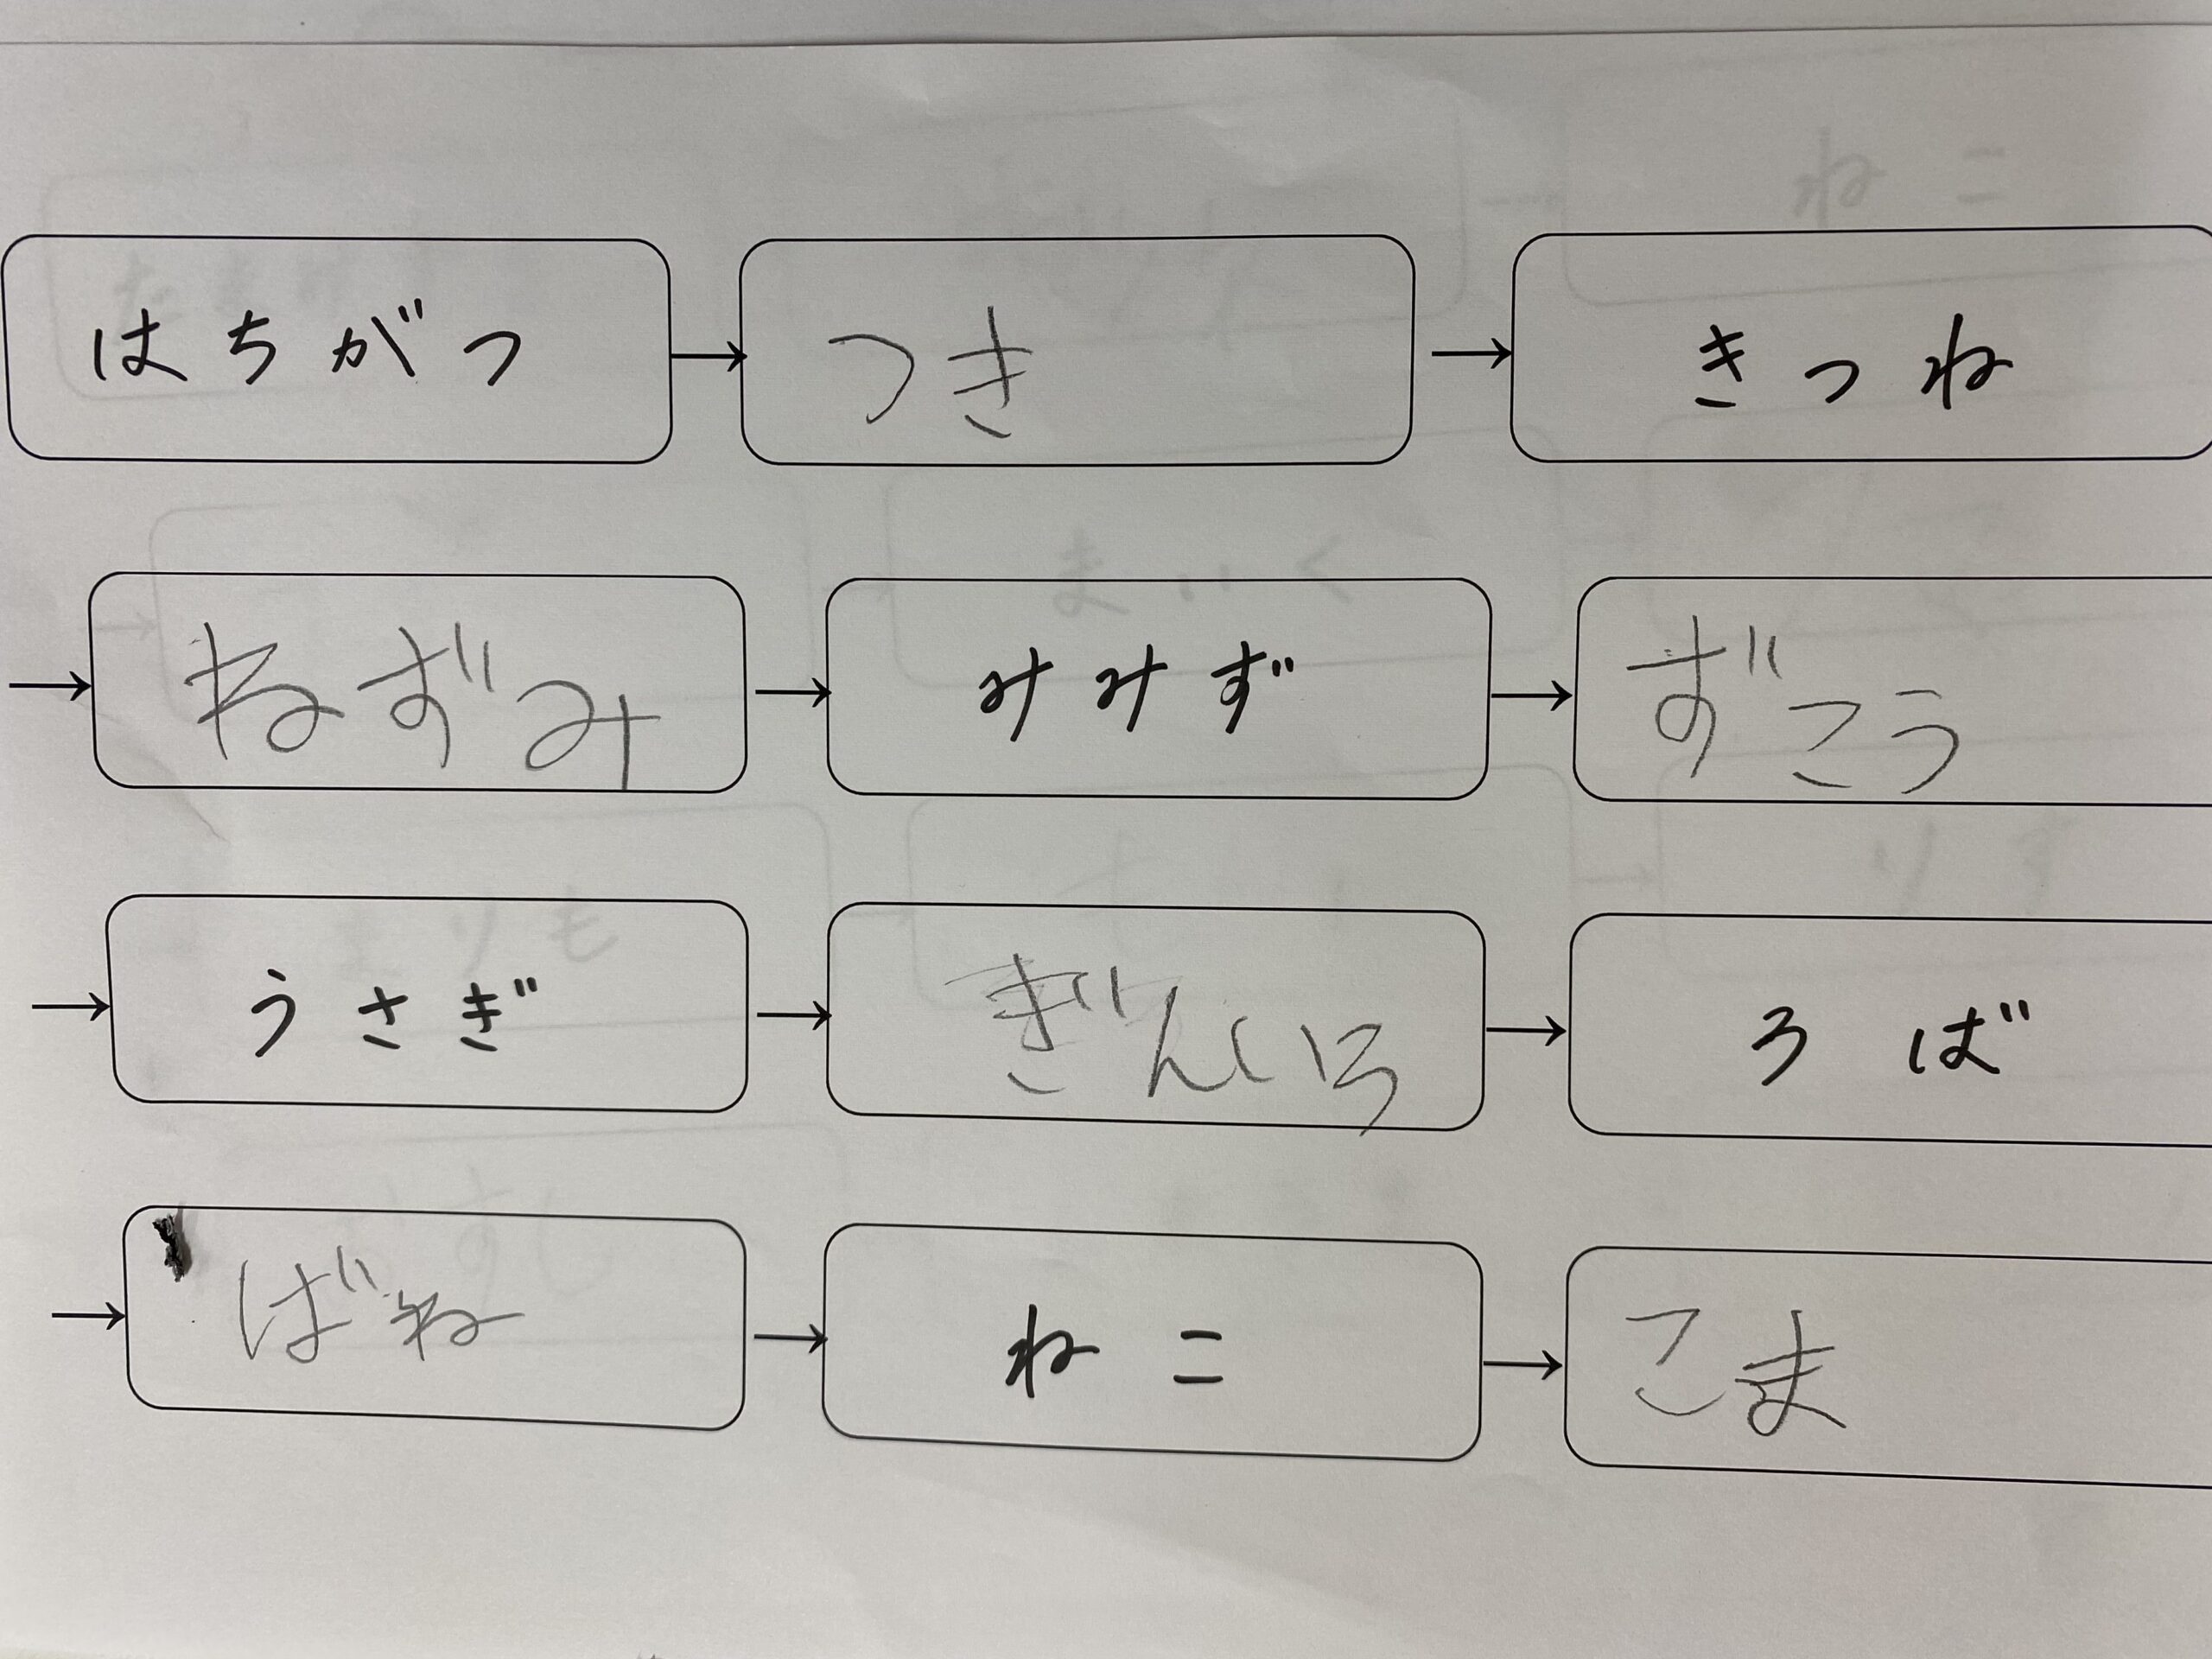 はちがつ → つき → きつね
→ ねずみ → みみず → ずこう
→ うさぎ → ぎんいろ → ろば
→ ばね → ねこ → こま